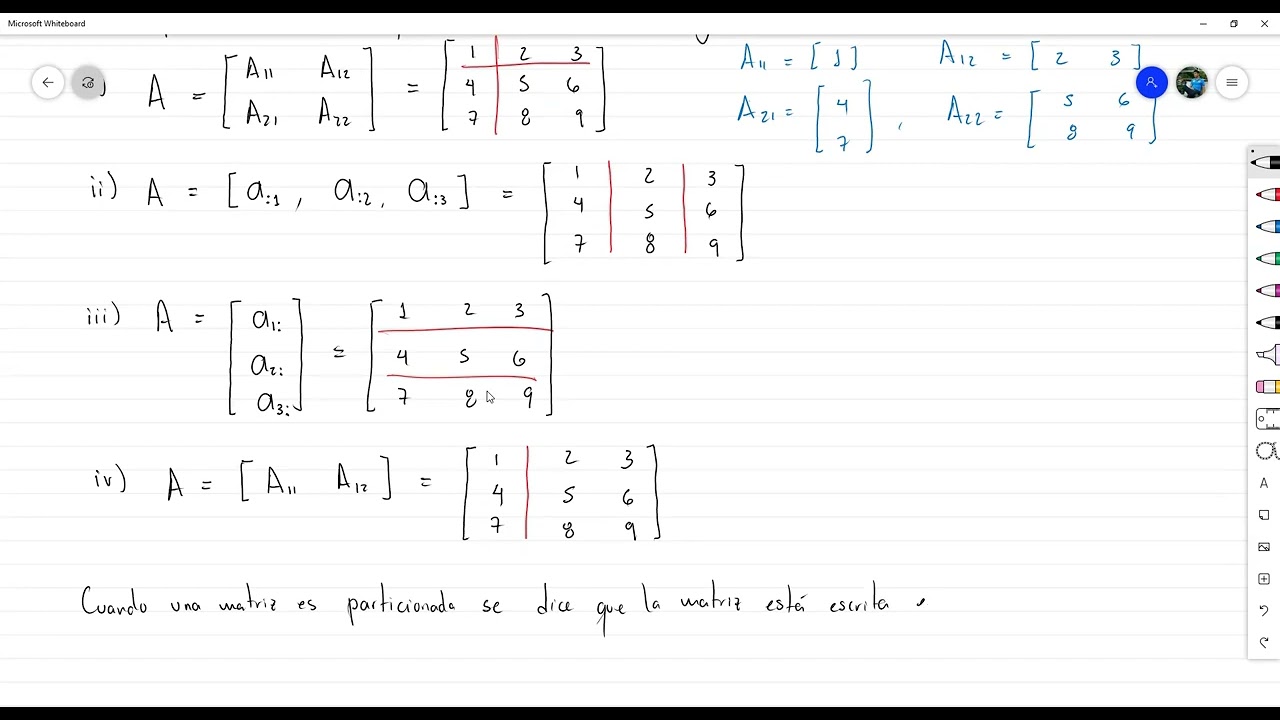 Microsoft Whiteboard
) A = [ A₁₁ A₁₂ ; A₂₁ A₂₂ ] = [ 1 | 2 3 ; 4 | 5 6 ; 7 | 8 9 ]
A₁₁ = [ 1 ] A₁₂ = [ 2 3 ]
A₂₁ = [ 4 ; 7 ] , A₂₂ = [ 5 6 ; 8 9 ]
ii) A = [ a:₁ , a:₂ , a:₃ ] = [ 1 | 2 | 3 ; 4 | 5 | 6 ; 7 | 8 | 9 ]
iii) A = [ a₁: ; a₂: ; a₃: ] = [ 1 2 3 ; 4 5 6 ; 7 8 9 ]
iv) A = [ A₁₁ A₁₂ ] = [ 1 | 2 3 ; 4 | 5 6 ; 7 | 8 9 ]
Cuando una matriz es particionada se dice que la matriz está escrita
A